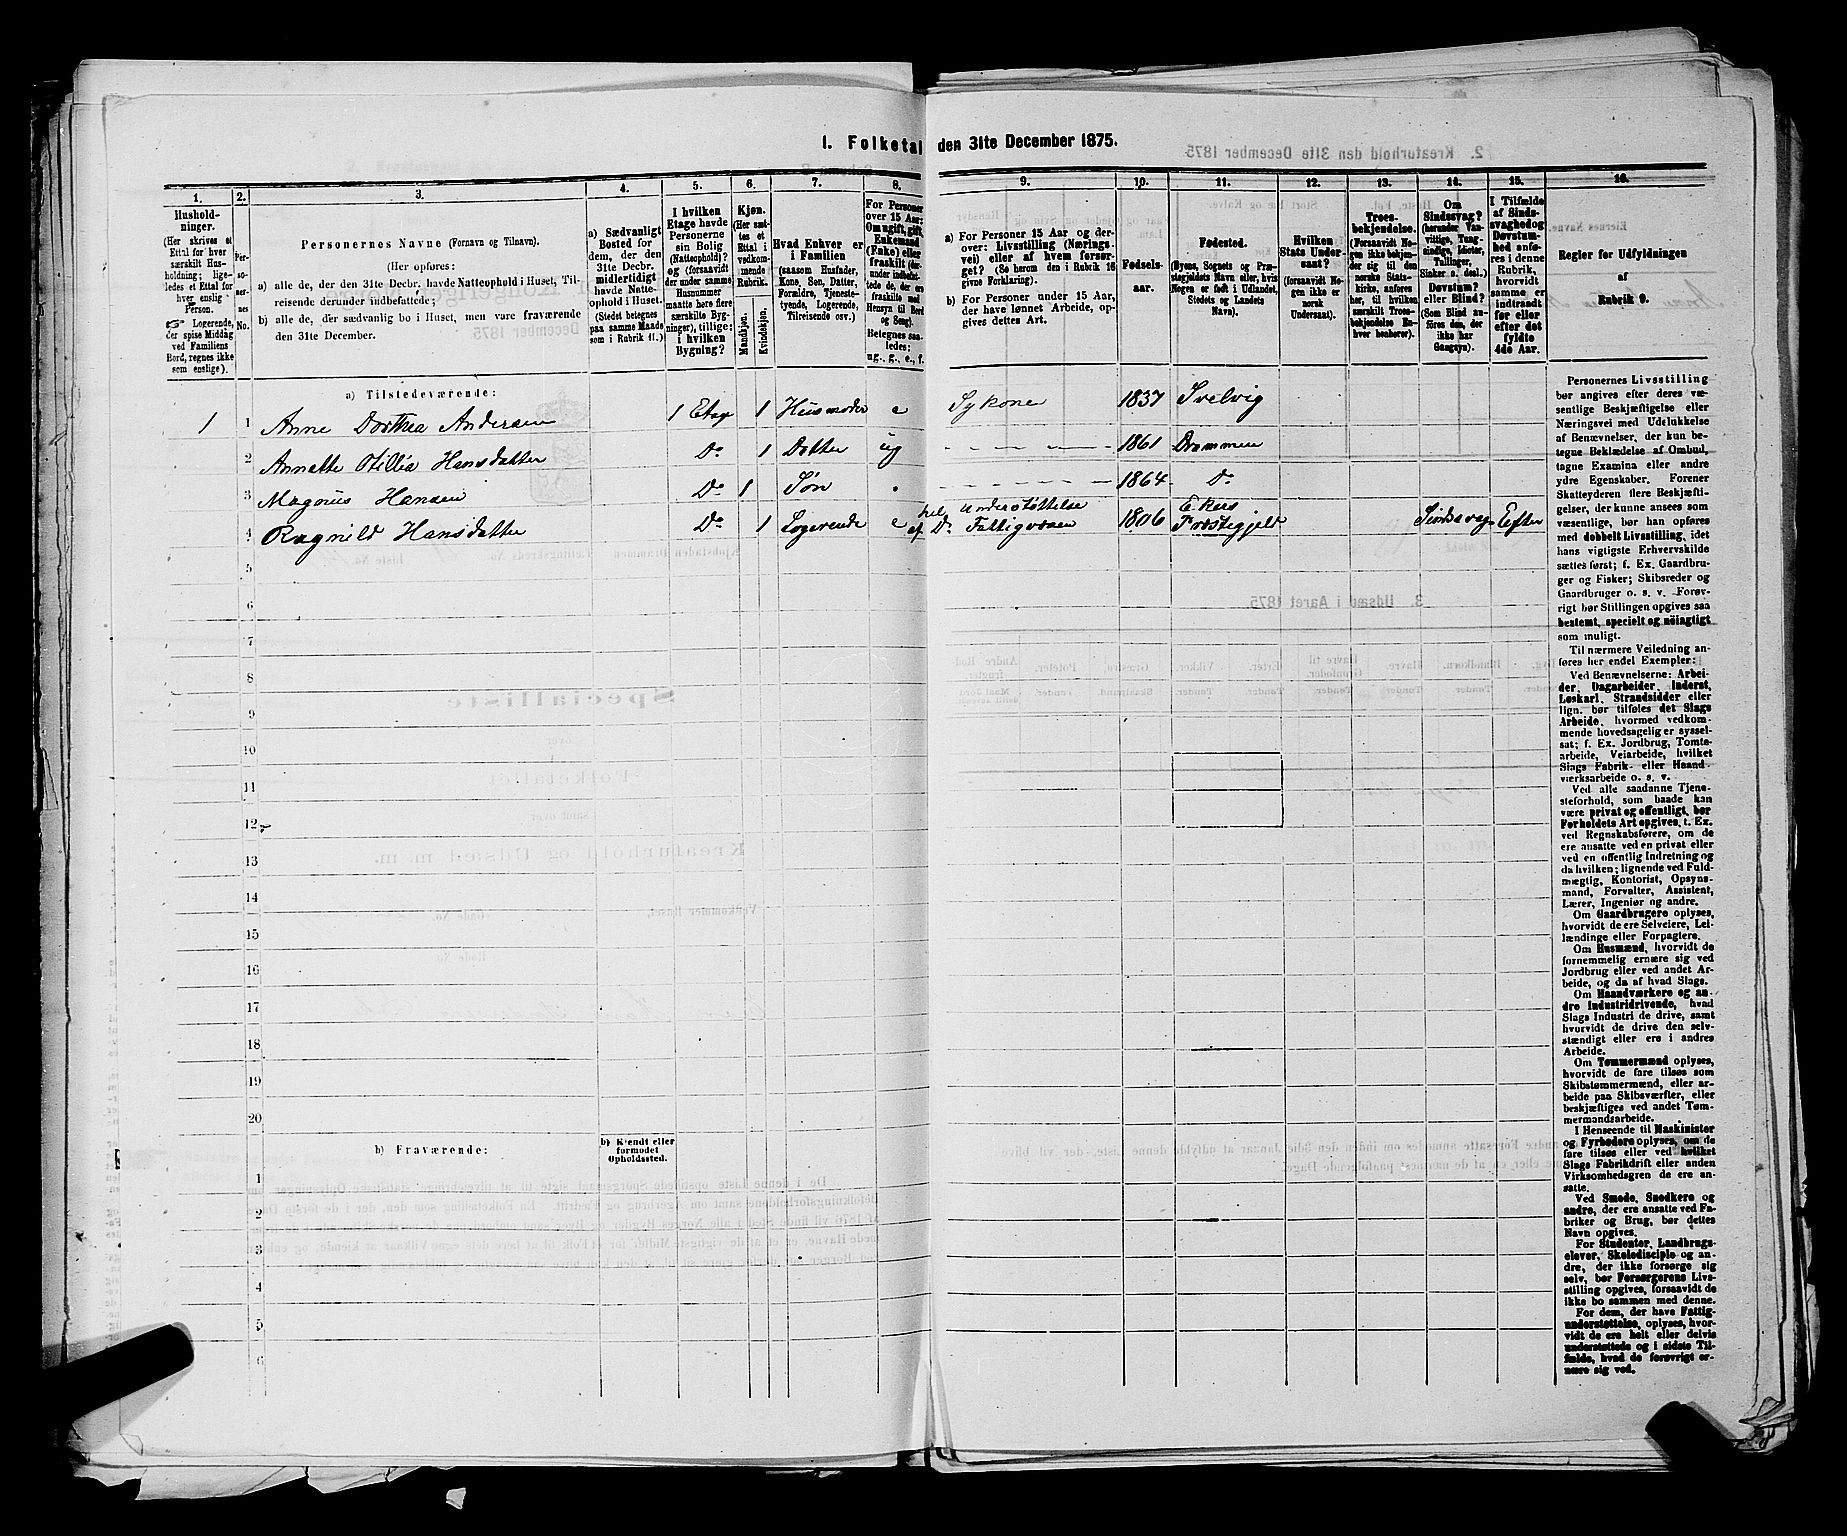 1. Folketal den 31te December 1875.
1.
2.
3.
4.
5.
6.
7.
8.
9.
10.
11.
12.
13.
14.
15.
16.
Hushold-
ninger.
(Her skrives et
Ettal for hver
særskilt Hus-
holdning; lige-
ledes et Ettal for
hver enslig
Person.
Logerende,
der spise Middag
ved Familiens
Bord, regnes ikke
som enslige).
Per-
so-
ner-
nes
No.
Personernes Navne (Fornavn og Tilnavn).
(Her opføres:
a) alle de, der den 31te Decbr. havde Natteophold i Huset, Til-
reisende derunder indbefattede;
b) alle de, der sædvanlig bo i Huset, men vare fraværende
den 31te December.
a) Sædvanligt
Bosted for
dem, der den
31te Decbr.
midlertidigt
havde Natte-
ophold i Huset.
(Stedet betegnes
paa samme Maade
som i Rubrik 11.)
I hvilken
Etage havde
Personerne
sin Bolig
(Natteophold)?
og (forsaavidt
der under samme
Husnummer
maatte høre flere
særskilte Byg-
ninger), tillige:
i hvilken
Bygning?
Kjøn.
(Her sæt-
tes et
Ettal i
vedkom-
mende
Rubrik.
Mandkjøn.
Kvindekjøn.
Hvad Enhver er
i Familien
(saasom Husfader,
Kone, Søn, Datter,
Forældre, Tjeneste-
tyende, Logerende,
Tilreisende osv.)
For Personer
over 15 Aar:
Om ugift, gift,
Enkemand
(Enke) eller
fraskilt
Betegnes saa-
ledes:
ug., g., e., f.
a) For Personer 15 Aar og der-
over: Livsstilling (Nærings-
vei) eller af hvem forsør-
get? (Se herom den i Rubrik 16
givne Forklaring).
b) For Personer under 15 Aar,
der have lønnet Arbeide, op-
gives dettes Art.
Fødsels-
aar.
Fødested.
(Byens, Sognets og Præ-
stegjeldets Navn eller, hvis
Nogen er født i Udlandet,
Stedets og Landets
Navn).
Hvilken
Stats Under-
saat?
(forsaavidt No-
gen ikke er
norsk
Undersaat).
Troes-
bekjendelse.
(Forsaavidt No-
gen ikke bekjen-
der sig til den
norske Stats-
kirke, anføres
her, til hvilket
særskilt Troes-
bekjendelse En-
hver henhører).
Om
Sindssvag?
(herunder Van-
vittige, Tung-
sindige, Idioter,
Tullinger,
Sinker o. desl.)
Døvstum?
eller Blind?
(Som Blind an-
føres den, der
ikke har
Gangsyn).
I Tilfælde
af Sinds-
svaghed og
Døvstum-
hed anfø-
res i denne
Rubrik,
hvorvidt
samme er
indtraadt
før eller
efter det
fyldte
4de Aar.
Regler for Udfyldningen
af
Rubrik 9.
a) Tilstedeværende:
1 1 Anne Dorthea Andersen 1 Etage 1 Husmoder e Sykone 1837 Svelvig
2 Annette Otillia Hansdatter Do 1 Datter ug 1861 Drammen
3 Magnus Hansen Do 1 Søn 1864 Do
4 Ragnild Hansdatter Do 1 Logerende e hel Understøttelse af Ds Fattigvæsen 1806 Ekers Præstegjeld Sindssvag Efter
5
6
7
8
9
10
11
12
13
14
15
16
17
18
19
20
b) Fraværende:
b) Kjendt eller
formodet
Opholdssted.
1
2
3
4
5
6
Personernes Livsstilling
bør angives efter deres væ-
sentlige Beskjæftigelse eller
Næringsvei med Udelukkelse
af Benævnelser, der kun be-
tegne Beklædelse af Ombud,
tagne Examina eller andre
ydre Egenskaber. Forener
Skatteyderen flere Beskjæfti-
gelser, der kunne ansees som
væsentlige, bør han opføres
med dobbelt Livsstilling, idet
hans vigtigste Erhvervskilde
sættes først; f. Ex. Gaardbru-
ger og Fisker; Skibsreder og
Gaardbruger o. s. v. Forøv-
rigt bør Stillingen opgives saa
bestemt, specielt og nöiagtigt
som muligt.
Til nærmere Veiledning an-
føres her endel Exempler:
Ved Benævnelserne: Arbei-
der, Dagarbeider, Inderst,
Løskarl, Strandsidder eller
lign. bør tilføies det Slags
Arbeide, hvormed vedkom-
mende hovedsagelig er syssel-
sat; f. Ex. Jordbrug, Tomte-
arbeide, Veiarbeide, hvilket
Slags Fabrik- eller Haand-
værksarbeide o. s. v.
Ved alle saadanne Tjene-
steforhold, som baade kan
være privat og offentligt, bør
Forholdets Art opgives, t. Ex.
ved Regnskabsførere, om de
ere ansatte ved en privat eller
ved en offentlig Indretning og
da hvilken; lignende ved Fuld-
mægtig, Kontorist, Opsyns-
mand, Forvalter, Assistent,
Lærer, Ingeniør og andre.
Om Gaardbrugere oplyses,
hvorvidt de ere Selveiere, Lei-
lændinge eller Forpagtere.
Om Husmænd, hvorvidt de
fornemmelig ernære sig ved
Jordbrug eller ved andet Ar-
beide, og da af hvad Slags.
Om Haandværkere og an-
dre Industridrivende, hvad
Slags Industri de drive, samt
hvorvidt de drive den selv-
stændigt eller ere i andres
Arbeide.
Om Tømmermænd oplyses,
hvorvidt de fare tilsøs som
Skibstømmermænd, eller ar-
beide paa Skibsværfter, eller
beskjæftiges ved andet Tøm-
mermandsarbeide.
I Henseende til Maskinister
og Fyrbødere oplyses, om de
fare tilsøs eller ved hvilket
Slags Fabrikdrift eller anden
Virksomhedsgren de ere an-
satte.
Ved Smede, Snedkere og
andre, der ere ansatte ved Fa-
briker og Brug, bør dettes
Navn opgives.
For Studenter, Landbrugs-
elever, Skoledisciple og an-
dre, der ikke forsørge sig
selv, bør Forsørgerens Livs-
stilling opgives, forsaavidt de
ikke bo sammen med denne.
For dem, der have Fattig-
understøttelse, oplyses, hvor-
vidt de ere helt eller delvis
understøttede og i sidste Til-
fælde, hvad de forøvrigt er-
nære sig ved.